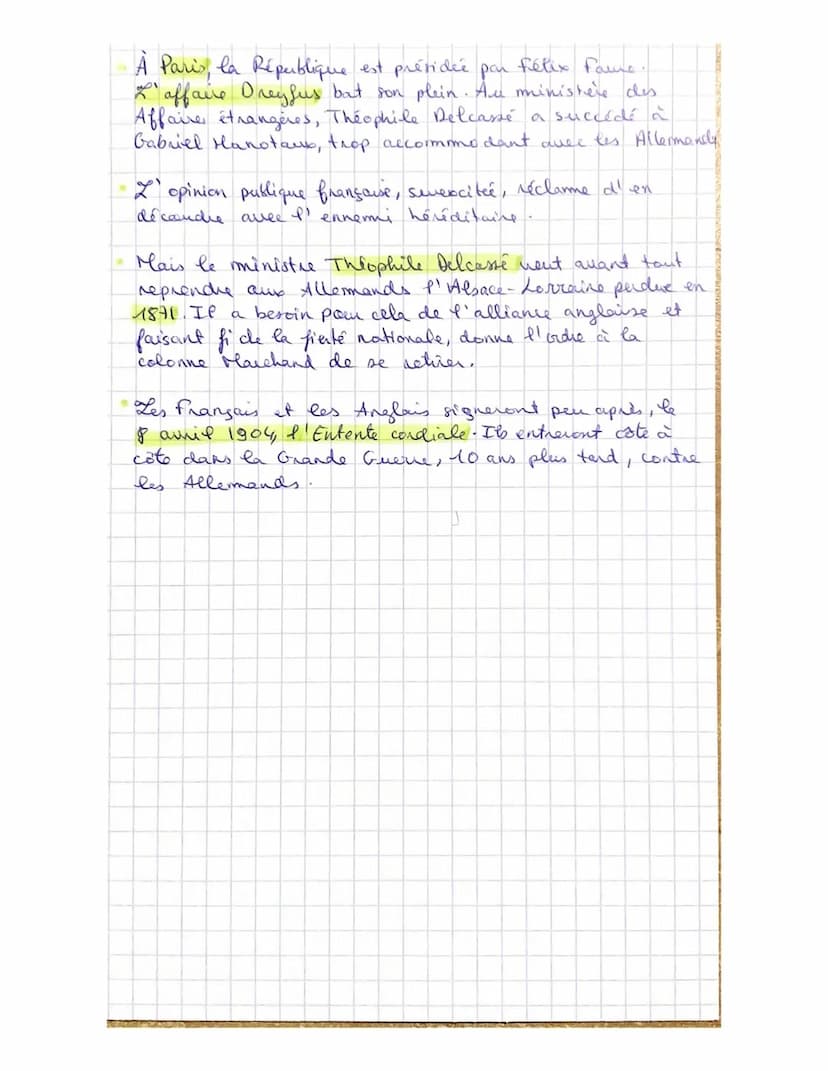 À Paris, la République est présidée par Félix Faure.
L'affaire Dreyfus bat son plein. Au ministère des
Affaires étrangères, Théophile Delcassé a succédé à
Gabriel Hanotaux, trop accommodant avec les Allemands
L'opinion publique française, surexcitée, réclame d'en
découdre avec l'ennemi héréditaire.
Mais le ministre Théophile Delcassé veut avant tout
reprendre aux Allemands l'Alsace-Lorraine perdue en
1871. Il a besoin pour cela de l'alliance anglaise et
faisant fi de la fierté nationale, donne l'ordre à la
colonne Marchand de se retirer.
Les Français et les Anglais signeront peu après, le
8 avril 1904, l'Entente cordiale. Ils entreront côte à
côte dans la Grande Guerre, 10 ans plus tard, contre
les Allemands.